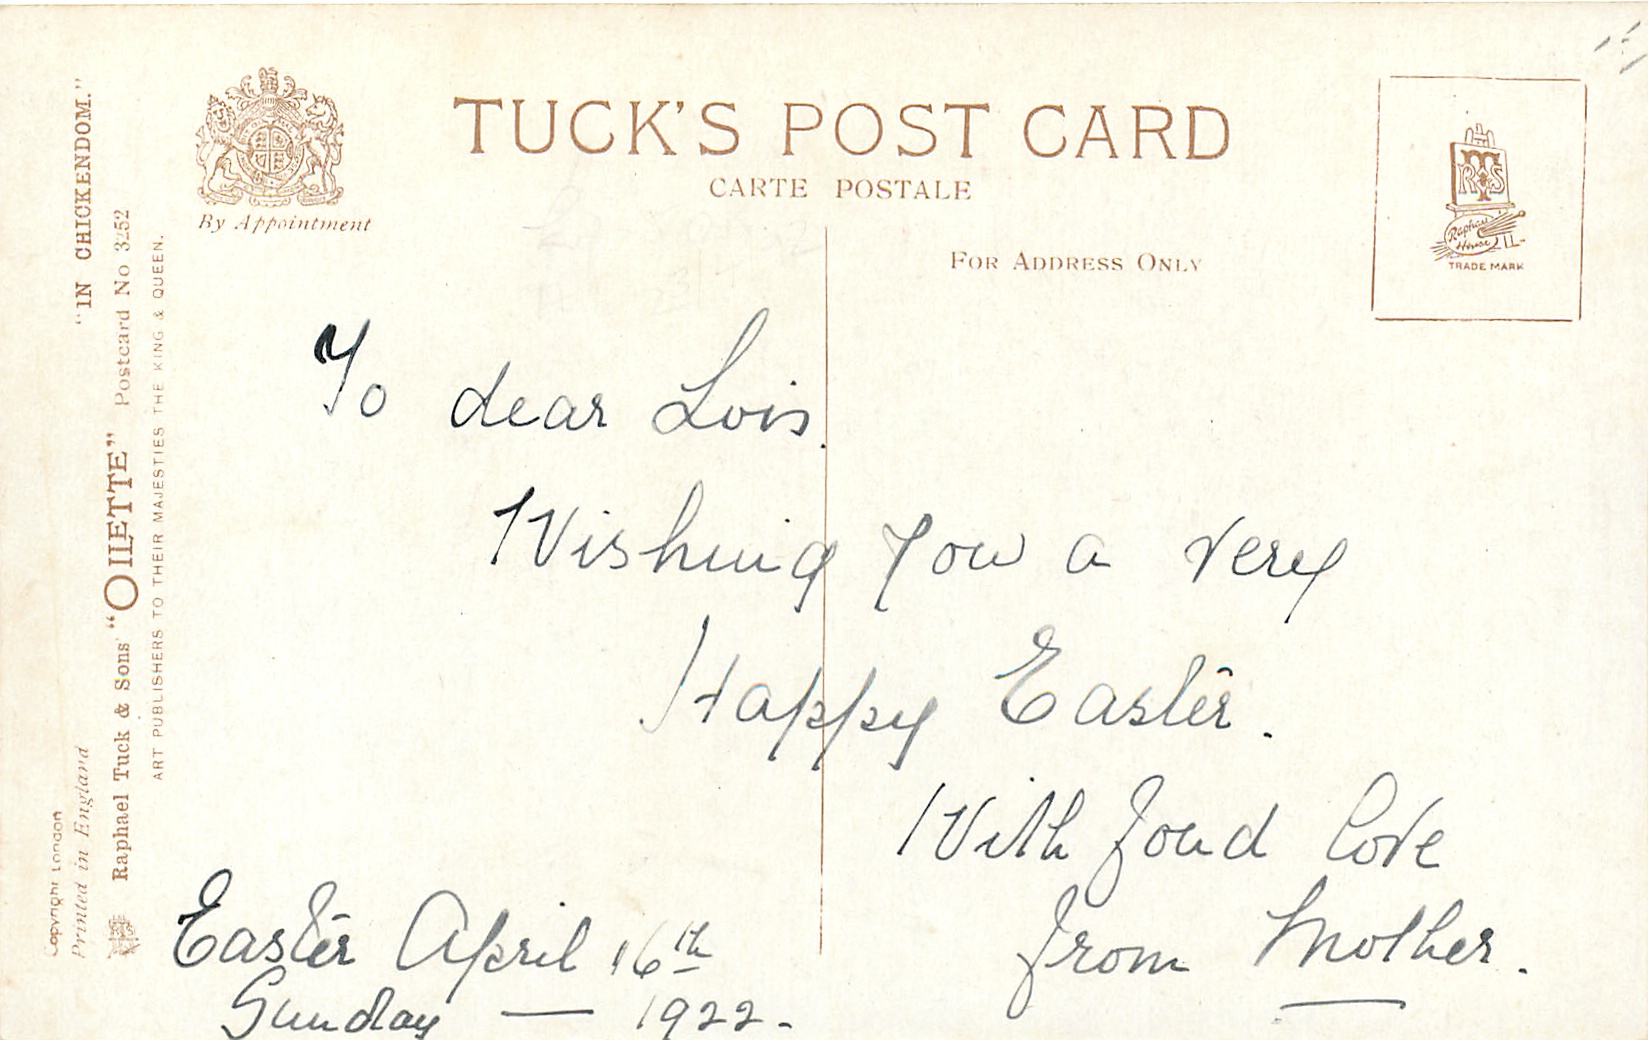 TUCK'S POST CARD
CARTE POSTALE
By Appointment
FOR ADDRESS ONLY
RTS
Raphael
House
TRADE MARK
"IN CHICKENDOM."
Raphael Tuck & Sons' "OILETTE" Postcard No 3252
ART PUBLISHERS TO THEIR MAJESTIES THE KING & QUEEN.
Copyright London
Printed in England
To dear Lois.
Wishing you a very
Happy Easter.
With fond love
from Mother.
Easter April 16th
Sunday — 1922.